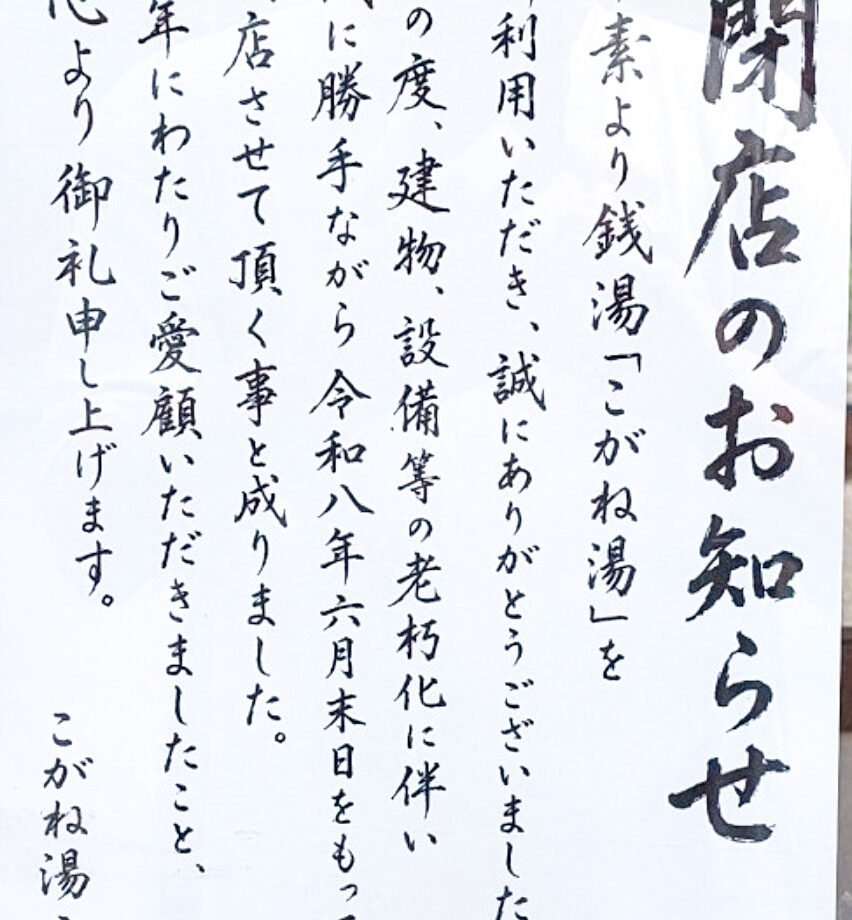 閉店のお知らせ
素より銭湯「こがね湯」を
利用いただき、誠にありがとうございました
の度、建物、設備等の老朽化に伴い
に勝手ながら令和八年六月末日をもって
店させて頂く事と成りました。
年にわたりご愛顧いただきましたこと、
心より御礼申し上げます。
こがね湯